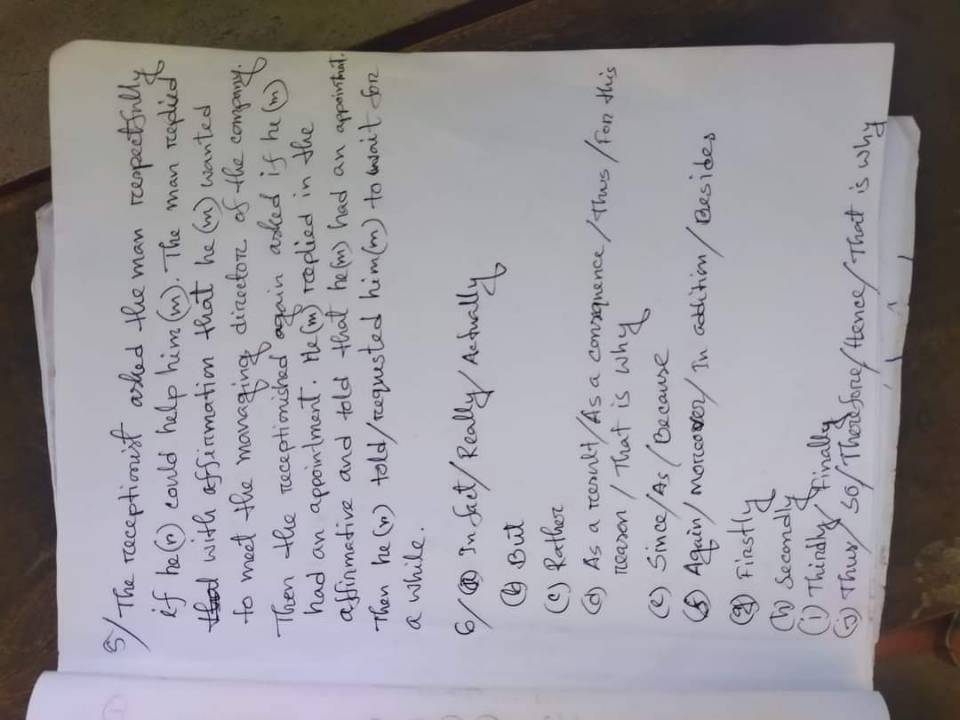 5/ The receptionist asked the man respectfully
if he(r) could help him(m). The man replied
with affirmation that he(m) wanted
to meet the managing director of the company.
Then the receptionished again asked if he(m)
had an appointment. He(m) replied in the
affirmative and told that he(m) had an appointment.
Then he(r) told/requested him(m) to wait for
a while.
6/ (a) In fact/Really/Actually
(b) But
(c) Rather
(d) As a result/As a consequence/Thus/For this
reason/That is why
(e) Since/As/Because
(f) Again/moreover/In addition/Besides
(g) Firstly
(h) Secondly
(i) Thirdly/Finally
(j) Thus/So/Therefore/Hence/That is why